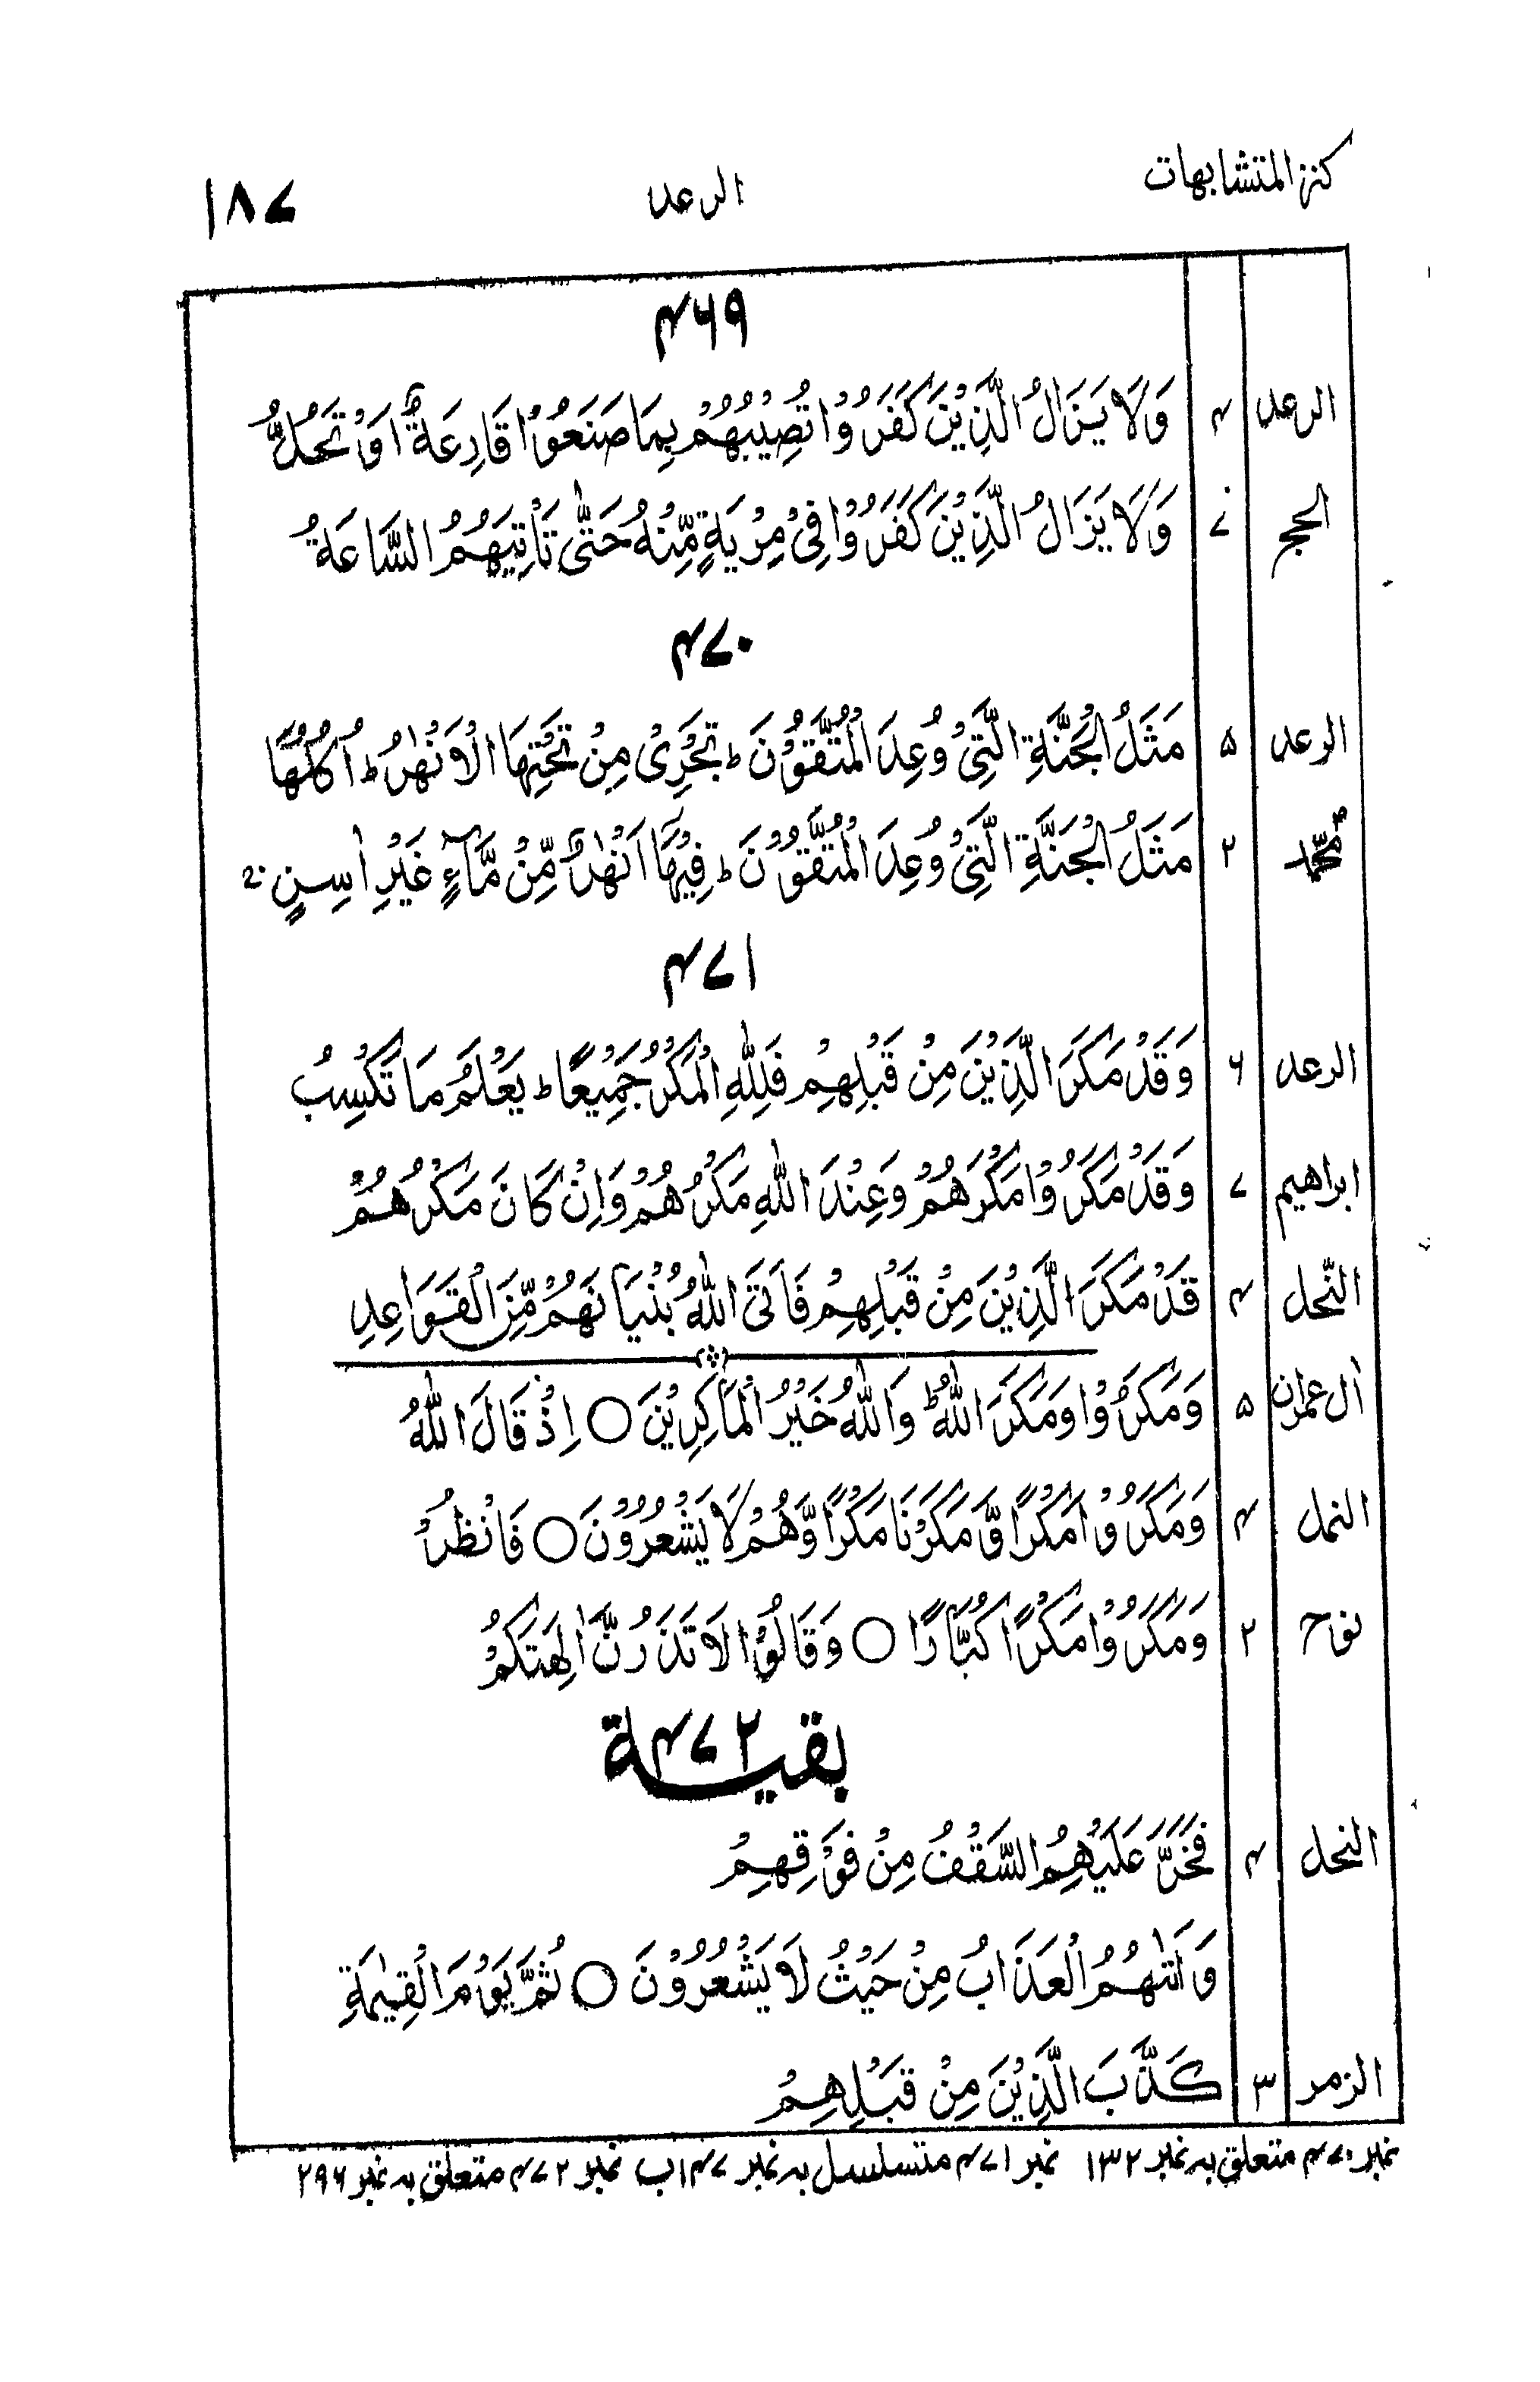 كنز المتشابهات الرعد ۱۸۷
۴۶۹
الرعد ۴ وَلَا يَزَالُ الَّذِيْنَ كَفَرُوْا تُصِيْبُهُمْ بِمَا صَنَعُوْا قَارِعَةٌ اَوْ تَحُلُّ
الحج ۷ وَلَا يَزَالُ الَّذِيْنَ كَفَرُوْا فِيْ مِرْيَةٍ مِّنْهُ حَتّٰى تَاْتِيَهُمُ السَّاعَةُ
۴۷۰
الرعد ۵ مَثَلُ الْجَنَّةِ الَّتِيْ وُعِدَ الْمُتَّقُوْنَ ؕ تَجْرِيْ مِنْ تَحْتِهَا الْاَنْهٰرُ ؕ اُكُلُهَا
محمّد ۲ مَثَلُ الْجَنَّةِ الَّتِيْ وُعِدَ الْمُتَّقُوْنَ ؕ فِيْهَا اَنْهٰرٌ مِّنْ مَّآءٍ غَيْرِ اٰسِنٍ
۴۷۱
الرعد ۶ وَقَدْ مَكَرَ الَّذِيْنَ مِنْ قَبْلِهِمْ فَلِلّٰهِ الْمَكْرُ جَمِيْعًا ؕ يَعْلَمُ مَا تَكْسِبُ
ابراهيم ۷ وَقَدْ مَكَرُوْا مَكْرَهُمْ وَعِنْدَ اللّٰهِ مَكْرُهُمْ وَاِنْ كَانَ مَكْرُهُمْ
النّحل ۴ قَدْ مَكَرَ الَّذِيْنَ مِنْ قَبْلِهِمْ فَاَتَى اللّٰهُ بُنْيَانَهُمْ مِّنَ الْقَوَاعِدِ
اٰل عمرٰن ۵ وَمَكَرُوْا وَمَكَرَ اللّٰهُ ؕ وَاللّٰهُ خَيْرُ الْمَاكِرِيْنَ ○ اِذْ قَالَ اللّٰهُ
النمل ۴ وَمَكَرُوْا مَكْرًا وَّمَكَرْنَا مَكْرًا وَّهُمْ لَا يَشْعُرُوْنَ ○ فَانْظُرْ
نوح ۲ وَمَكَرُوْا مَكْرًا كُبَّارًا ○ وَقَالُوْا لَا تَذَرُنَّ اٰلِهَتَكُمْ
بقية ۴۷۲
النحل ۴ فَخَرَّ عَلَيْهِمُ السَّقْفُ مِنْ فَوْقِهِمْ
وَاَتٰىهُمُ الْعَذَابُ مِنْ حَيْثُ لَا يَشْعُرُوْنَ ○ ثُمَّ يَوْمَ الْقِيٰمَةِ
الزمر ۳ كَذَّبَ الَّذِيْنَ مِنْ قَبْلِهِمْ
نمبر ۴۷۰ متعلق به نمبر ۱۳۲ نمبر ۴۷۱ متسلسل به نمبر ۱۴۷ب نمبر ۴۷۲ متعلق به نمبر ۲۹۶